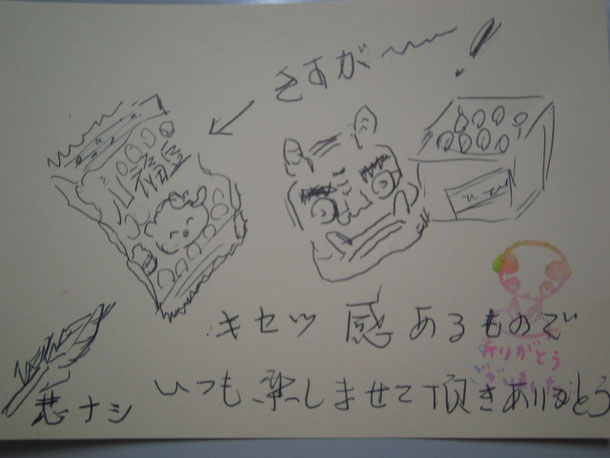 さすが〜〜!
キセツ感あるもので
ありがとう
いつも、楽しませて頂きありがとう
悲ナシ